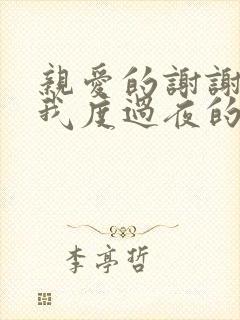 親愛的謝謝
我度過夜的
李亭哲